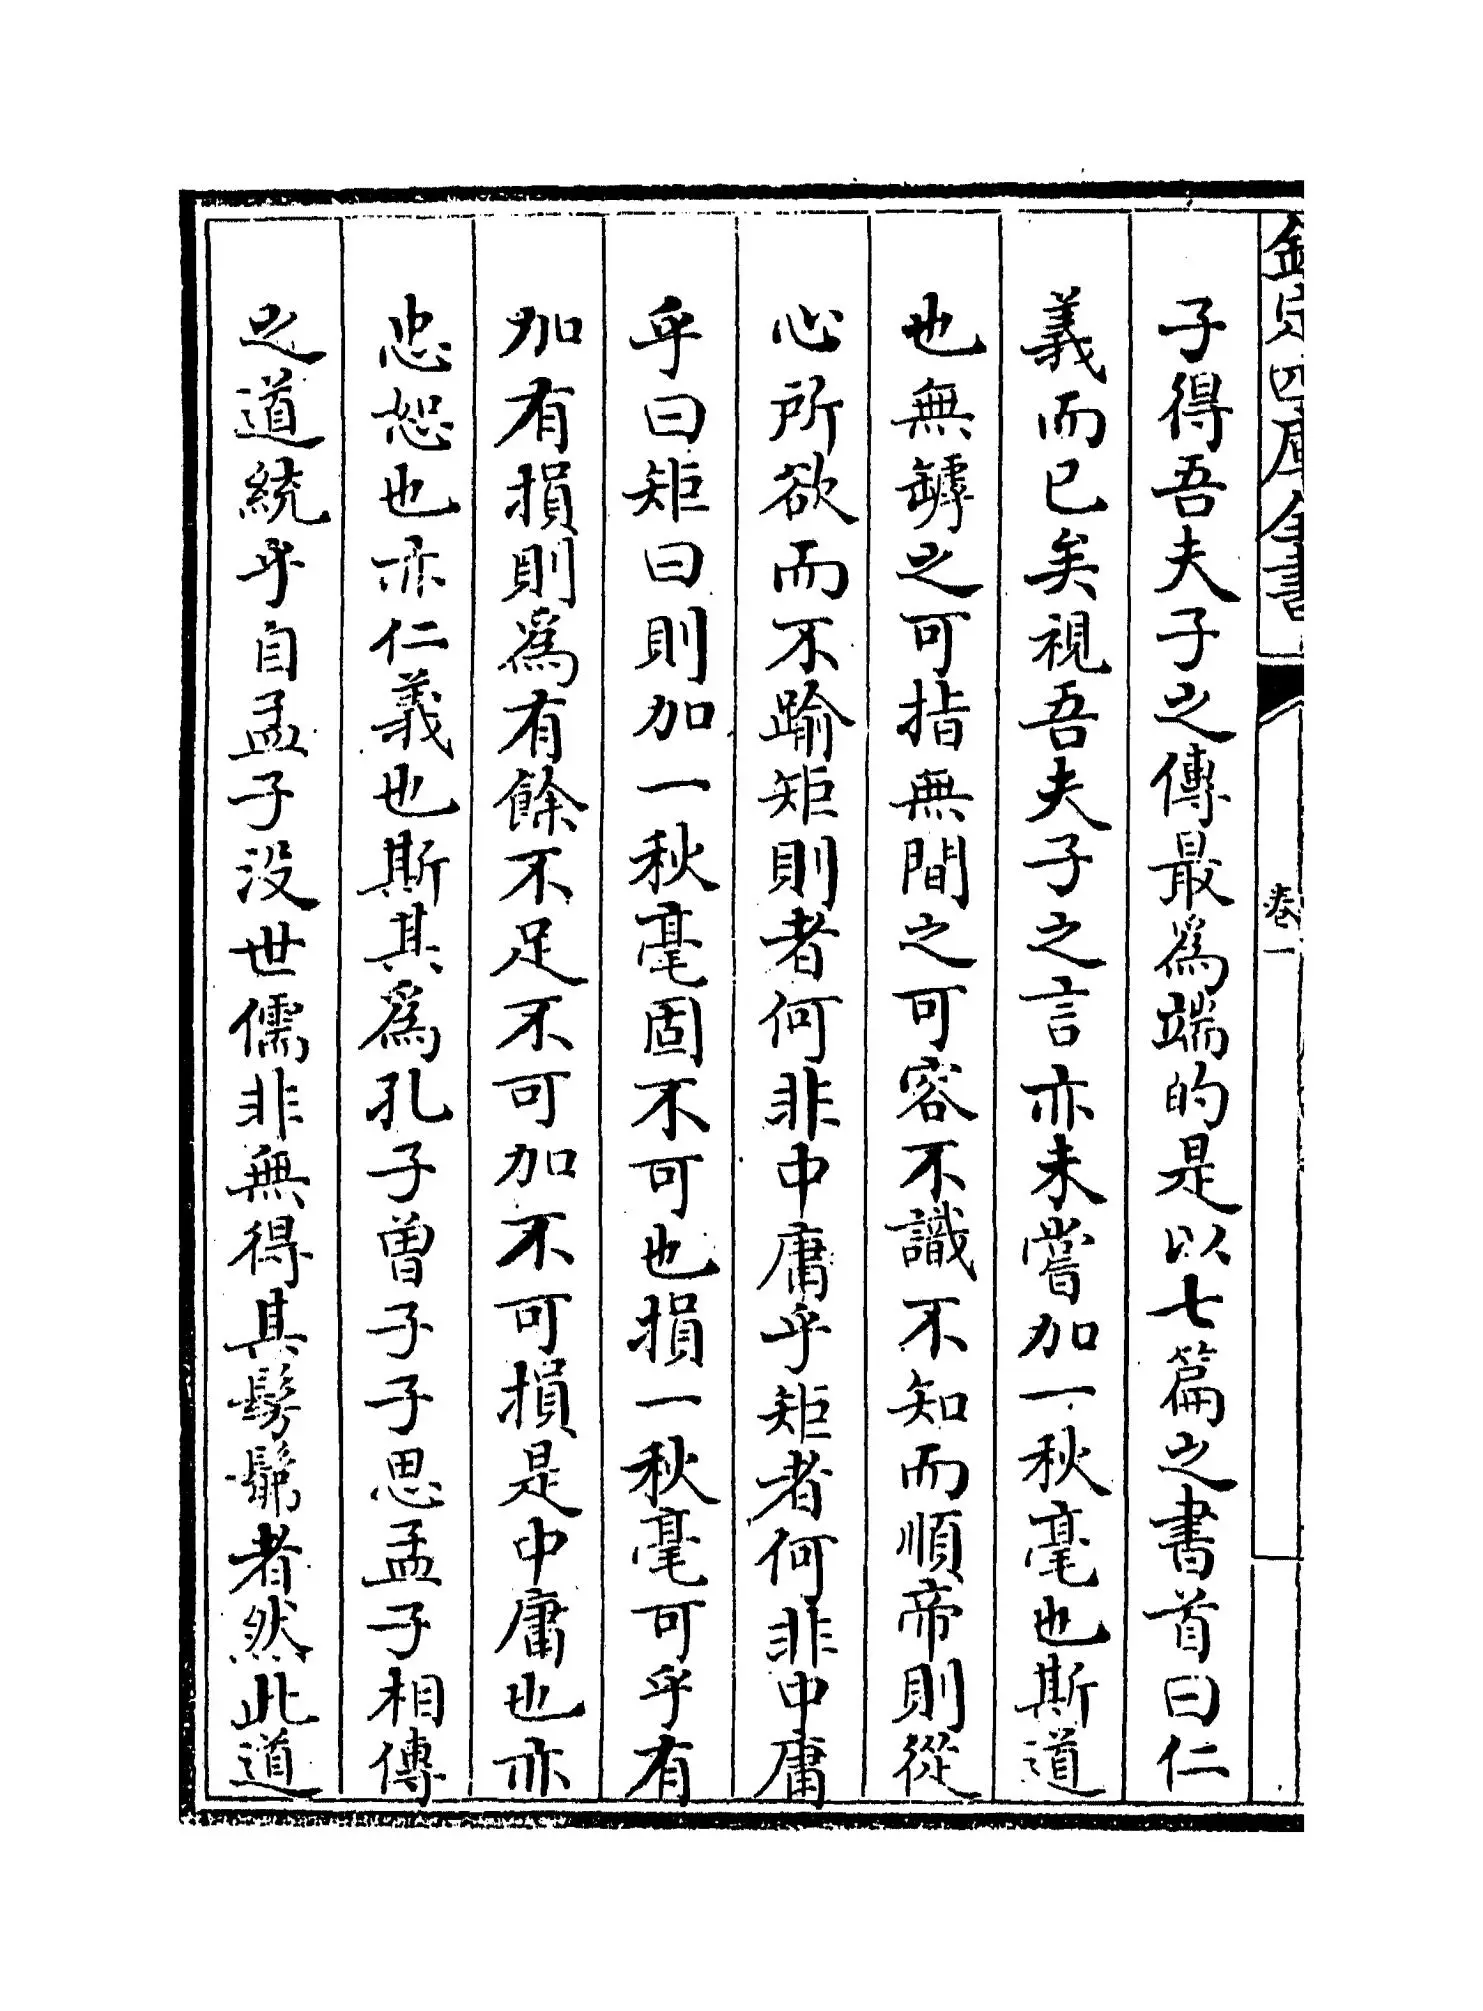 欽定四庫全書
卷一
子得吾夫子之傳最為端的是以七篇之書首曰仁
義而已矣視吾夫子之言亦未嘗加一秋毫也斯道
也無罅之可指無間之可容不識不知而順帝則從
心所欲而不踰矩則者何非中庸乎矩者何非中庸
乎曰矩曰則加一秋毫固不可也損一秋毫可乎有
加有損則為有餘不足不可加不可損是中庸也亦
忠恕也亦仁義也斯其為孔子曾子子思孟子相傳
之道統乎自孟子没世儒非無得其髣髴者然此道